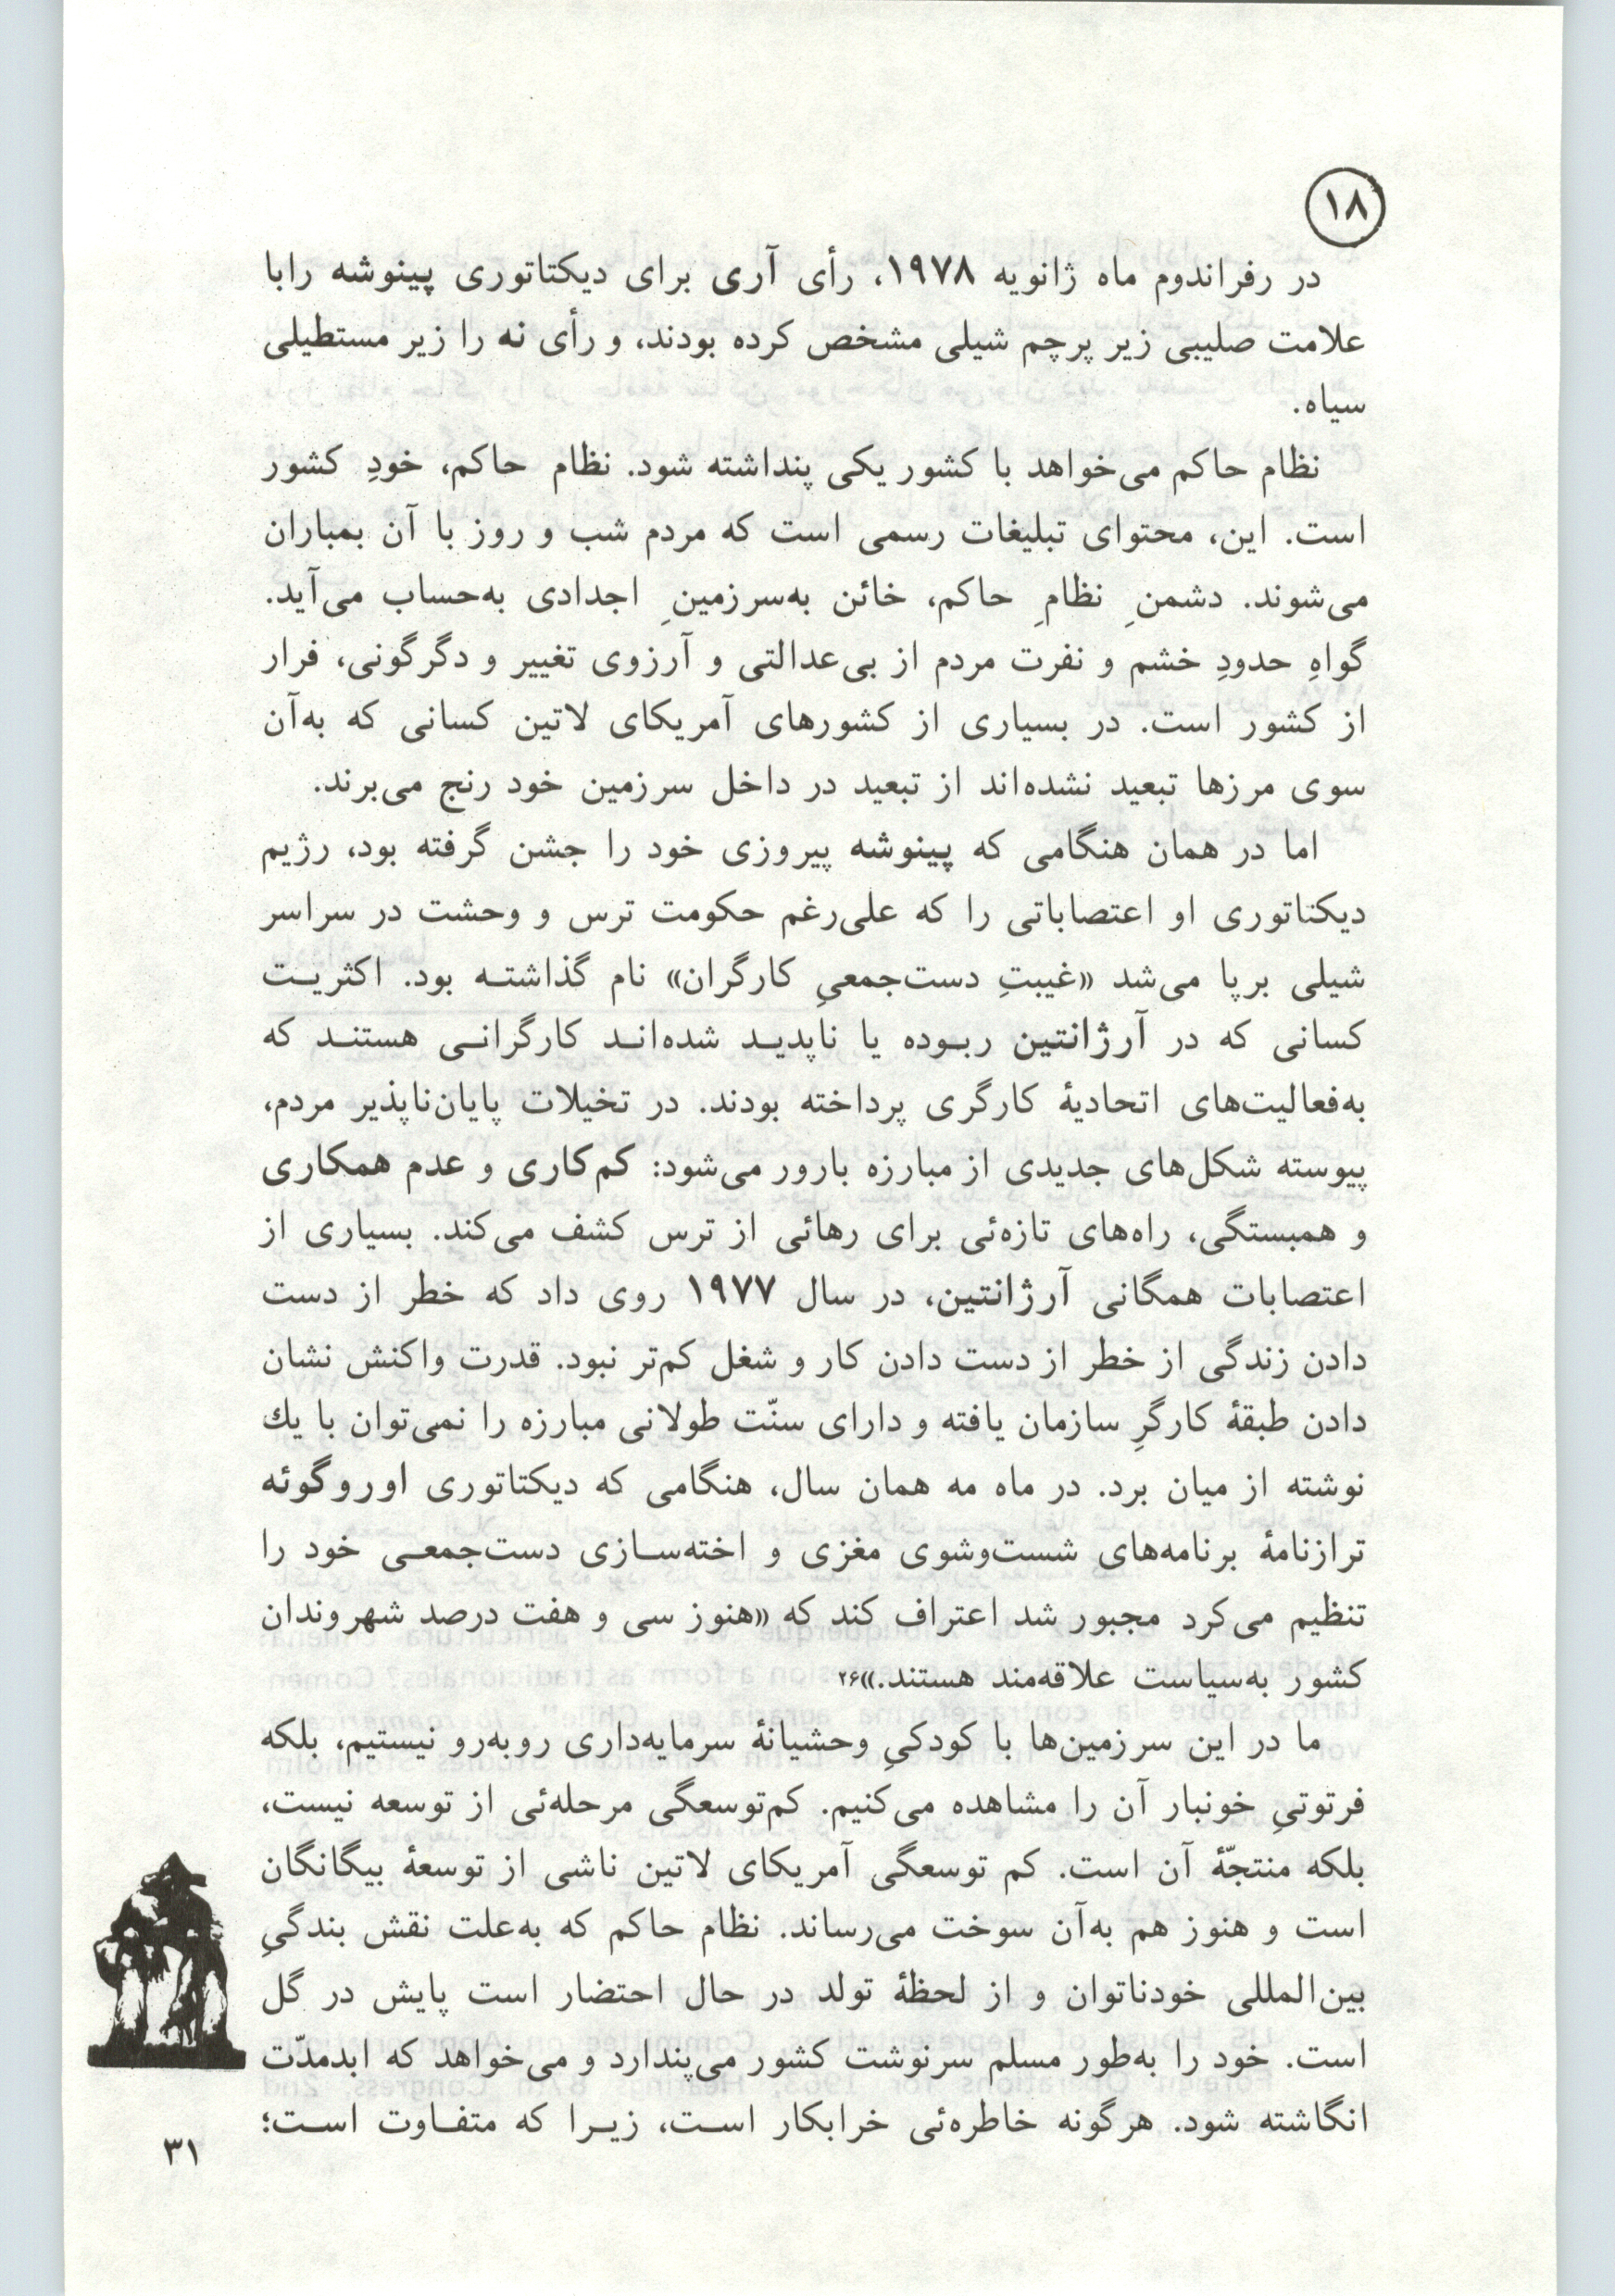 ۱۸
در رفراندوم ماه ژانویه ۱۹۷۸، رأی آری برای دیکتاتوری پینوشه رابا
علامت صلیبی زیر پرچم شیلی مشخص کرده بودند، و رأی نه را زیر مستطیلی
سیاه.
نظام حاکم می‌خواهد با کشور یکی پنداشته شود. نظام حاکم، خودِ کشور
است. این، محتوای تبلیغات رسمی است که مردم شب و روز با آن بمباران
می‌شوند. دشمنِ نظامِ حاکم، خائن به‌سرزمینِ اجدادی به‌حساب می‌آید.
گواهِ حدودِ خشم و نفرت مردم از بی‌عدالتی و آرزوی تغییر و دگرگونی، فرار
از کشور است. در بسیاری از کشورهای آمریکای لاتین کسانی که به‌آن
سوی مرزها تبعید نشده‌اند از تبعید در داخل سرزمین خود رنج می‌برند.
اما در همان هنگامی که پینوشه پیروزی خود را جشن گرفته بود، رژیم
دیکتاتوری او اعتصاباتی را که علی‌رغم حکومت ترس و وحشت در سراسر
شیلی برپا می‌شد «غیبتِ دست‌جمعیِ کارگران» نام گذاشتـه بود. اکثریـت
کسانی که در آرژانتین ربـوده یا ناپدیـد شده‌انـد کارگرانـی هستنـد که
به‌فعالیت‌های اتحادیهٔ کارگری پرداخته بودند. در تخیلات پایان‌ناپذیر مردم،
پیوسته شکل‌های جدیدی از مبارزه بارور می‌شود: کم‌کاری و عدم همکاری
و همبستگی، راه‌های تازه‌ئی برای رهائی از ترس کشف می‌کند. بسیاری از
اعتصابات همگانی آرژانتین، در سال ۱۹۷۷ روی داد که خطر از دست
دادن زندگی از خطر از دست دادن کار و شغل کم‌تر نبود. قدرت واکنش نشان
دادن طبقهٔ کارگرِ سازمان یافته و دارای سنّت طولانی مبارزه را نمی‌توان با یك
نوشته از میان برد. در ماه مه همان سال، هنگامی که دیکتاتوری اوروگوئه
ترازنامهٔ برنامه‌های شست‌وشوی مغزی و اخته‌سـازی دست‌جمعـی خود را
تنظیم می‌کرد مجبور شد اعتراف کند که «هنوز سی و هفت درصد شهروندان
کشور به‌سیاست علاقه‌مند هستند.»۲۶
ما در این سرزمین‌ها با کودکیِ وحشیانهٔ سرمایه‌داری روبه‌رو نیستیم، بلکه
فرتوتیِ خونبار آن را مشاهده می‌کنیم. کم‌توسعگی مرحله‌ئی از توسعه نیست،
بلکه منتجّهٔ آن است. کم توسعگی آمریکای لاتین ناشی از توسعهٔ بیگانگان
است و هنوز هم به‌آن سوخت می‌رساند. نظام حاکم که به‌علت نقش بندگیِ
بین‌المللی خودناتوان و از لحظهٔ تولد در حال احتضار است پایش در گل
است. خود را به‌طور مسلم سرنوشت کشور می‌پندارد و می‌خواهد که ابدمدّت
انگاشته شود. هرگونه خاطره‌ئی خرابکار اسـت، زیـرا که متفـاوت اسـت؛
۳۱